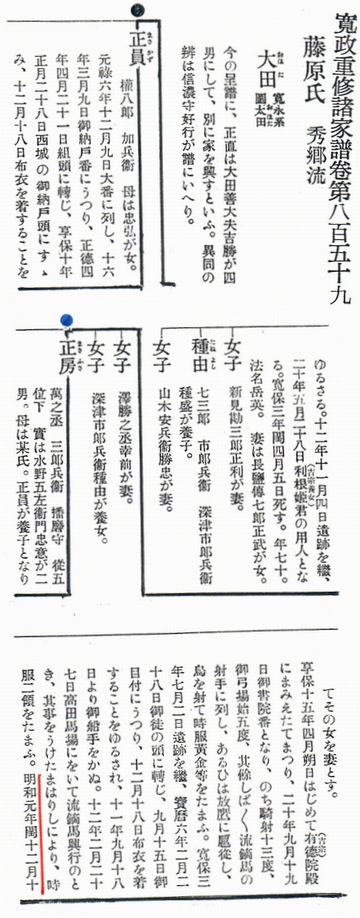 寛政重修諸家譜卷第八百五十九
藤原氏 秀郷流
大田 おほた 寛永系圖太田
今の呈譜に、正直は大田善大夫吉勝が四
男にして、別に家を興すといふ。異同の
辨は信濃守好行が譜にいへり。
正員 まさかず
權八郎 加兵衞 母は忠弘が女。
元祿六年十二月九日大番に列し、十六
年三月九日御納戸番にうつり、正德四
年四月二十一日組頭に轉じ、享保十年
正月二十八日西城の御納戸頭にすゝ
み、十二月十八日布衣を着することを
ゆるさる。十二年十一月四日遺跡を繼、
二十年五月二十八日利根姬君(吉宗養女)の用人とな
る。寛保三年閏四月五日死す。年七十。
法名岳英。 妻は長鹽傳七郎正武が女。
女子
新見勘三郎正利が妻。
種由 たねよし
七三郎 市郎兵衞 深津市郎兵衞
種盛が養子。
女子
山木安兵衞勝忠が妻。
女子
澤勝之丞幸前が妻。
女子
深津市郎兵衞種由が養女。
正房 まさふさ
萬之丞 三郎兵衞 播磨守 從五
位下 實は水野五左衞門忠意が二
男。母は某氏。正員が養子となり
てその女を妻とす。
享保十五年四月朔日はじめて有德院殿(吉宗)
にまみえたてまつり、二十年九月十九
日御書院番となり、のち騎射十三度、
御弓場始五度、其餘しば〱流鏑馬の
射手に列し、あるひは放鷹に扈從し、
鳥を射て時服黃金等をたまふ。寛保三
年七月二日遺跡を繼、寶曆六年二月二
十八日御徒の頭に轉じ、九月十五日御
目付にうつり、十二月十八日布衣を着
することをゆるされ、十一年九月十八
日より御船手をかぬ。十二年二月二十
七日高田馬場にをいて流鏑馬興行のと
き、其事をうけたまはりしにより、時
服二領をたまふ。明和元年閏十二月十